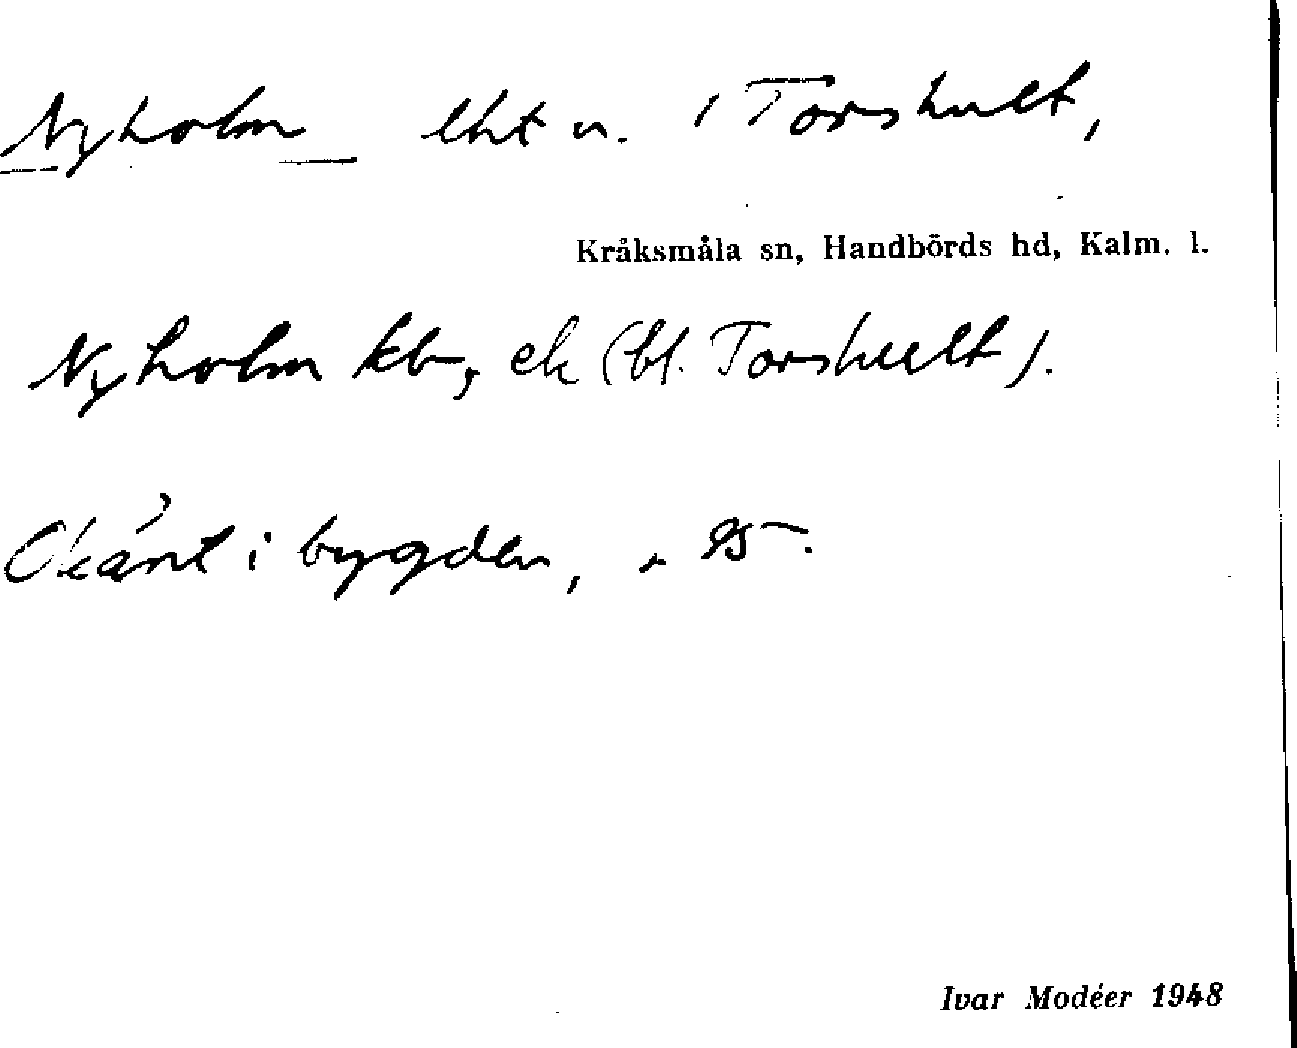 Nyholm lht u. i Torshult,
Kråksmåla sn, Handbörds hd, Kalm. l.
Nyholm kb, ek (bl. Torshult).
Okänt i bygden,
Ivar Modéer 1948